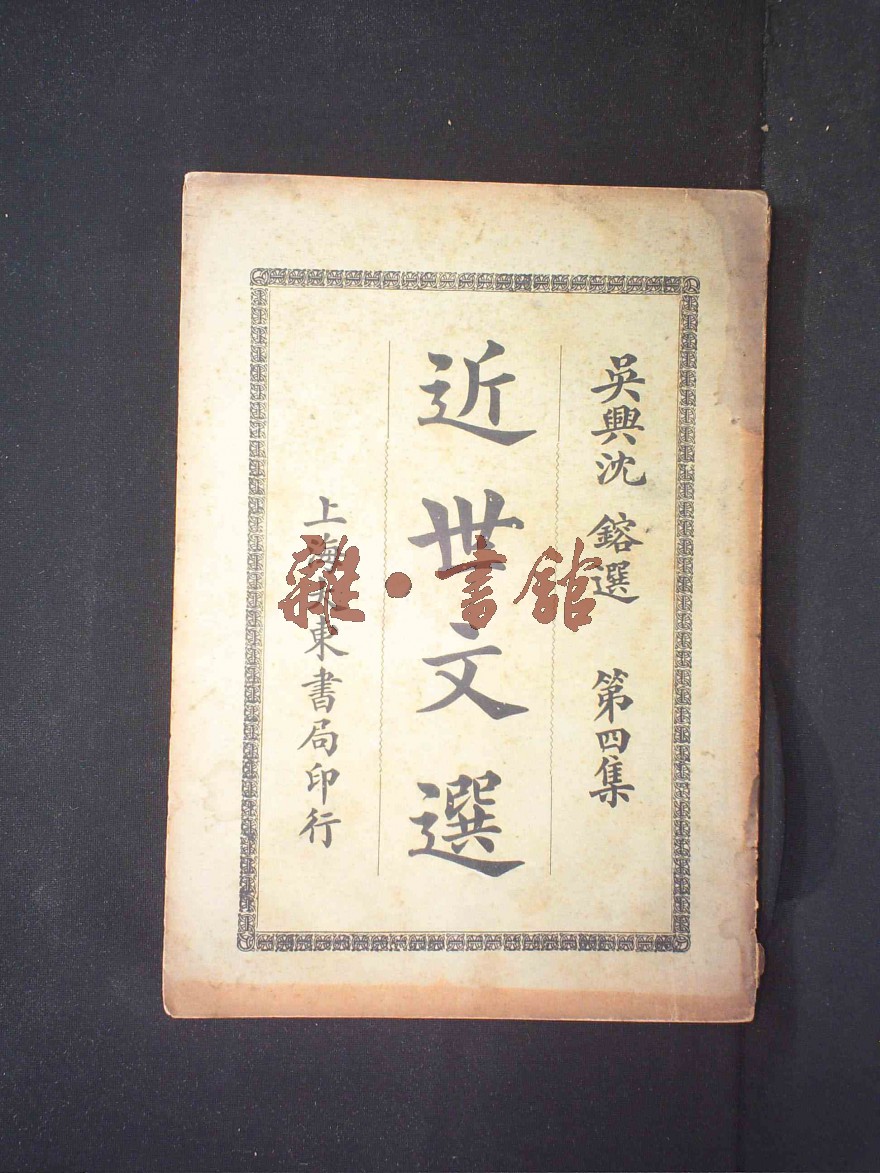 吳興沈鎔選 第四集
近世文選
上海大東書局印行
雜·書館